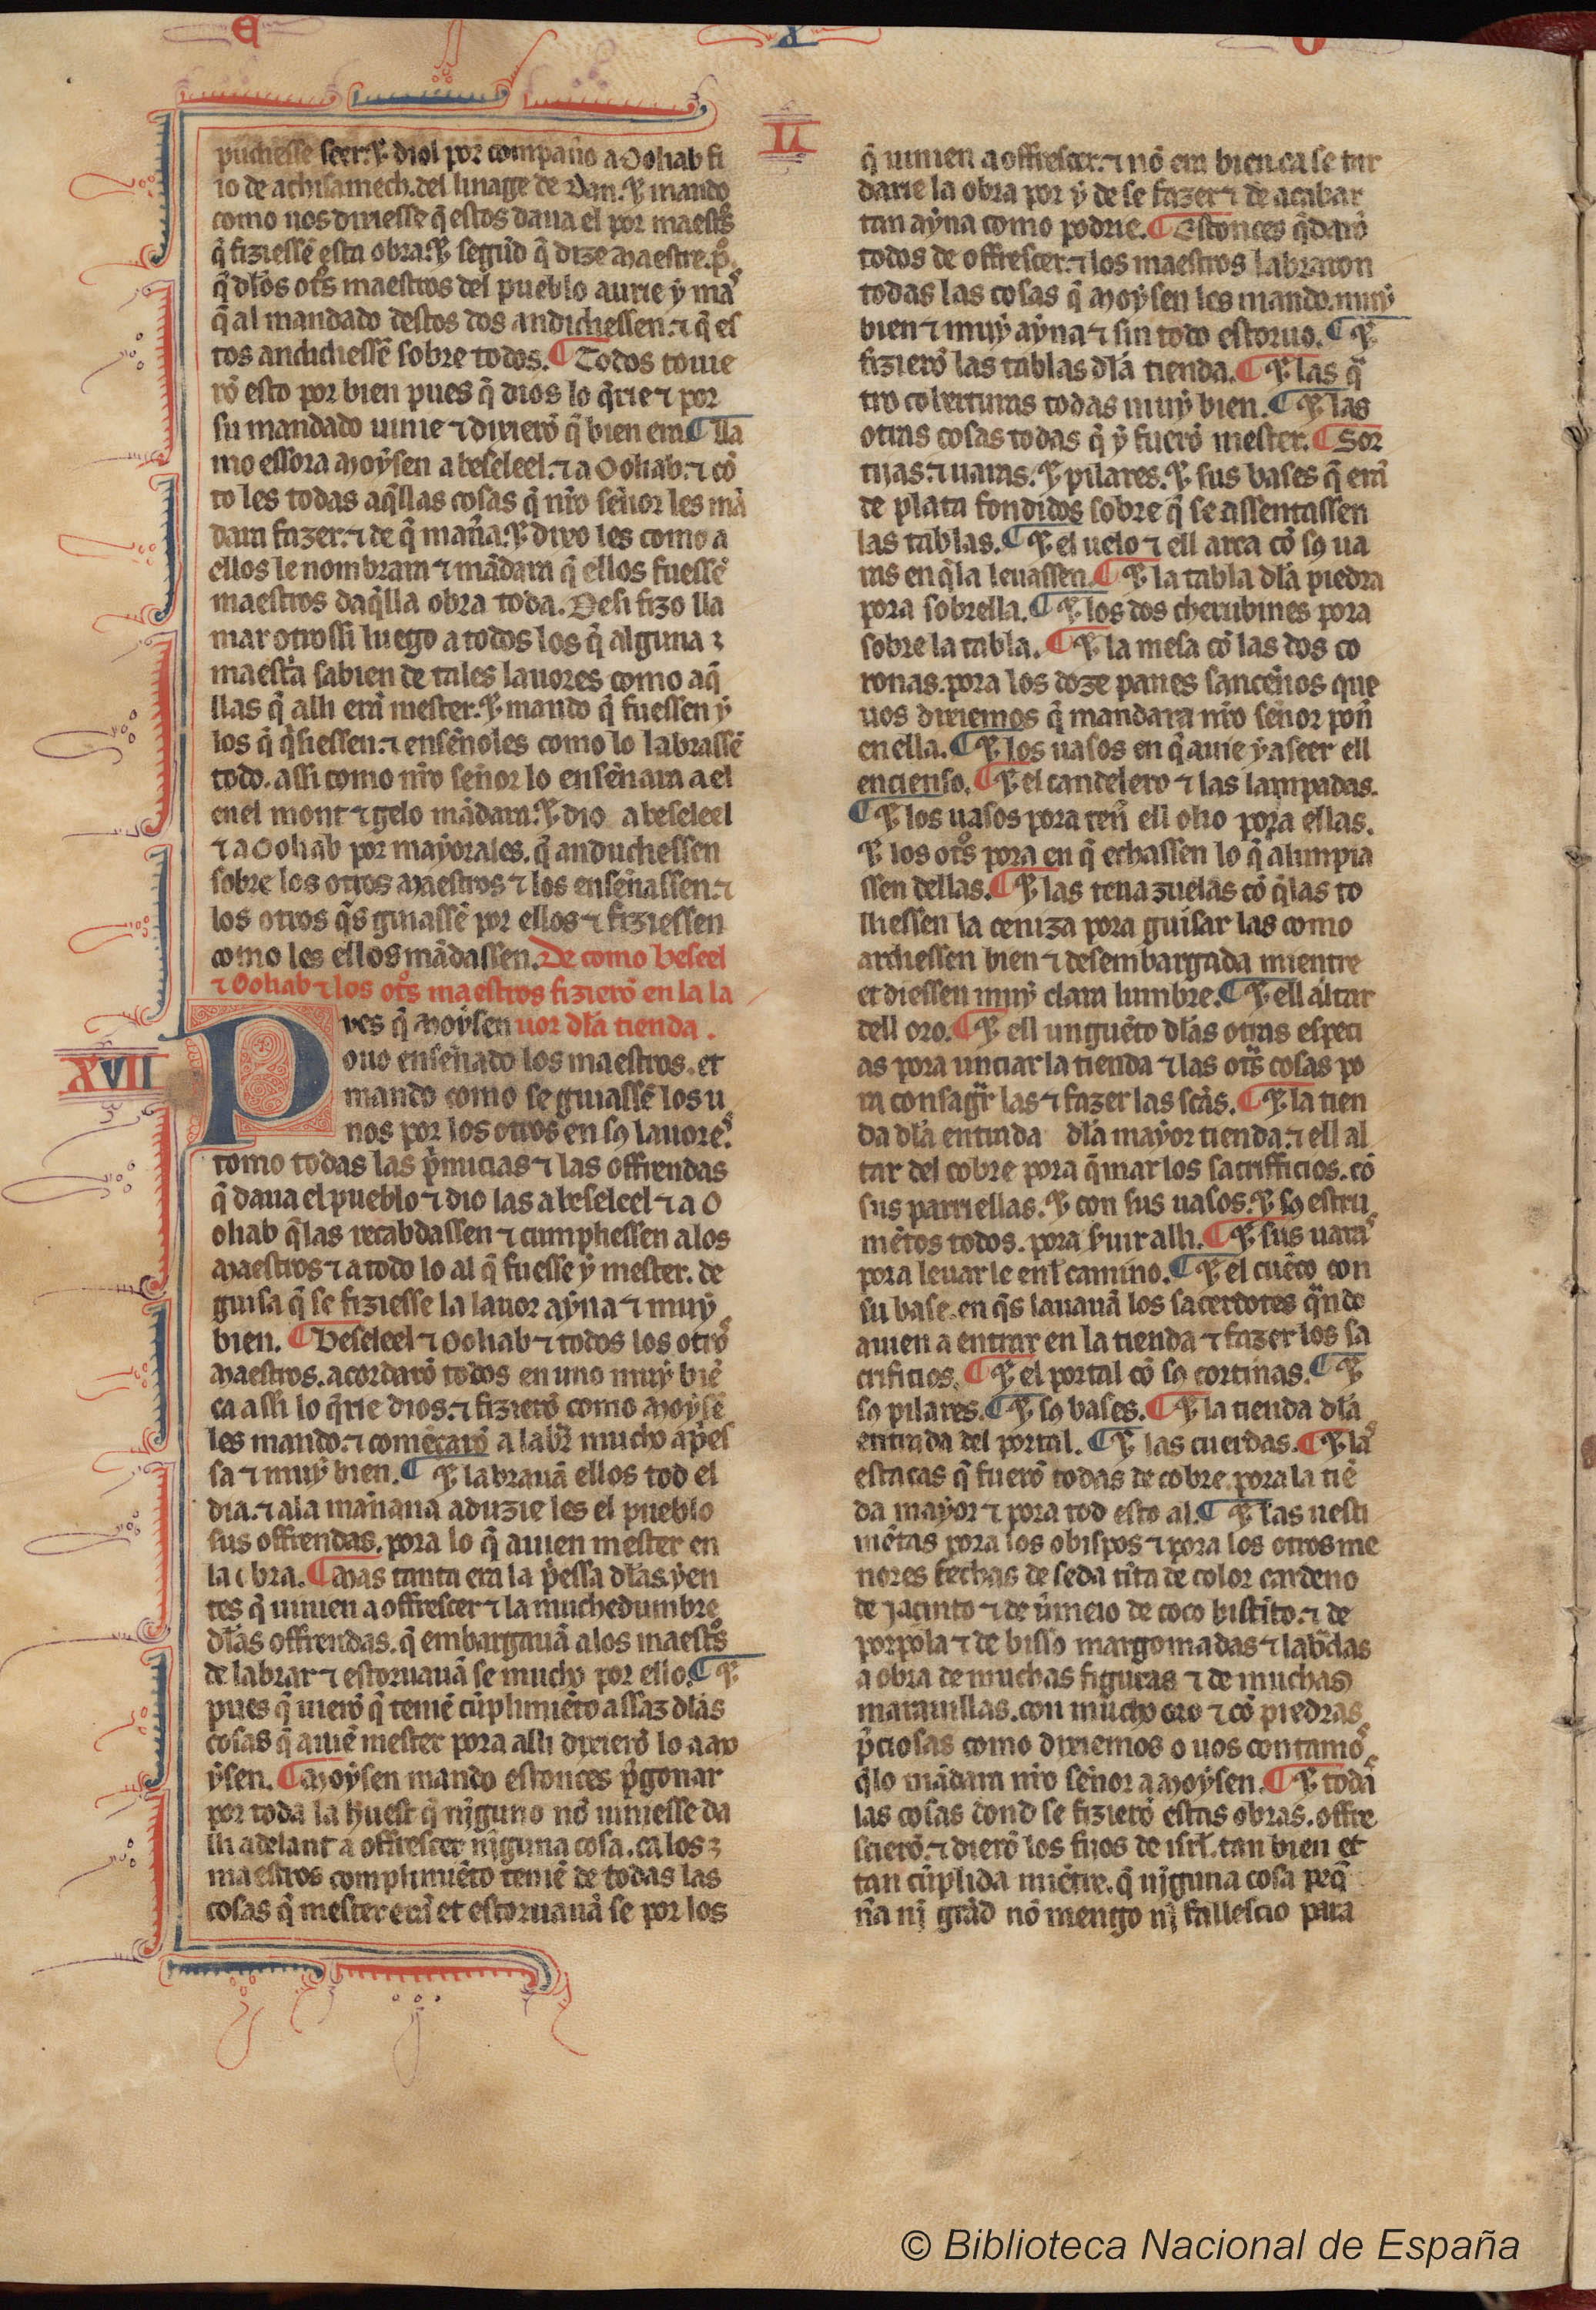 E X O
L
puchesse seer. ⁊ diol por compañõ a Oohab fi
io de achisamech. del linage de Dan. ⁊ mando
como uos dixiesse q̃ estos daua el por maestͦs
q̃ fiziessẽ esta obra. ⁊ segũd q̃ dize maestre. pͦ.
q̃ dl̃os otͦs maestros del pueblo aurie y mas
q̃ al mandado destos dos andidiessen. ⁊ q̃ es
tos andidiessẽ sobre todos. ¶ Todos touie
rõ esto por bien pues q̃ dios lo q̃rie ⁊ por
su mandado uinie ⁊ dixierõ q̃ bien era ¶ Lla
mo essora Moysen a beseleel. ⁊ a Oohab. ⁊ cõ
to les todas aq̃llas cosas q̃ nr̃o señor les mã
dara fazer. ⁊ de q̃ mañа. ⁊ dixo les como a
ellos le nombrara ⁊ mãdara q̃ ellos fuessẽ
maestros daq̃lla obra toda. Desi fizo lla
mar otrossi luego a todos los q̃ alguna
maestͥa sabien de tales lauores como aq̃
llas q̃ alli erã mester. ⁊ mando q̃ fuessen y
los q̃ q̃siessen. ⁊ enseñoles como lo labrassẽ
todo. assi como nr̃o señor lo enseñara a el
en el mont ⁊ gelo mãdara. ⁊ dio a beseleel
⁊ a Oohab por mayorales. q̃ anduchessen
sobre los otros maestros ⁊ los enseñassen. ⁊
los otros q̃s guiassẽ por ellos ⁊ fiziessen
como les ellos mãdassen. De como beseel
⁊ Oohab ⁊ los otͦs maestros fizierõ en la la
Pves q̃ Moysen uor dl̃a tienda.
XVII
ouo enseñado los maestros. et
mando como se guiassẽ los u
nos por los otros en sꝯ lauores.
tomo todas las pͥmicias ⁊ las offrendas
q̃ daua el pueblo ⁊ dio las a beseleel ⁊ a O
ohab q̃las recabdassen ⁊ cumpliessen a los
maestros ⁊ a todo lo al q̃ fuesse y mester. de
guisa q̃ se fiziesse la lauor ayna ⁊ muy
bien. ¶ Beseleel ⁊ Oohab ⁊ todos los otros
maestros. acordarõ todos en uno muy biẽ
ca assi lo q̃rie dios. ⁊ fizierõ como Moysẽ
les mando. ⁊ começarõ a labrͣ mucho apͥes
sa ⁊ muy bien. ¶ ⁊ labrauã ellos tod el
dia. ⁊ ala mañana aduzie les el pueblo
sus offrendas. pora lo q̃ auien mester en
la obra. ¶ Mas tanta era la pͥessa dl̃as yen
tes q̃ uinien a offrescer ⁊ la muchedumbre
dl̃as offrendas. q̃ embargauã a los maestͦs
de labrar ⁊ estoruauã se mucho por ello. ¶ ⁊
pues q̃ uierõ q̃ teniẽ cũplimiẽto assaz dl̃as
cosas q̃ auiẽ mester pora alli dixierõ lo a mo
ysen. ¶ Moysen mando estonces pͥgonar
por toda la huest q̃ nĩguno nõ uiniesse da
lli adelant a offrescer nĩguna cosa. ca los
maestros complimiẽto teniẽ de todas las
cosas q̃ mester erã et estoruauã se por los
q̃ uinien a offrescer. ⁊ nõ era bien. ca se tar
darie la obra por y de se fazer ⁊ de acabar
tan ayna como podrie. ¶ Estonces q̃darõ
todos de offrescer. ⁊ los maestros labraron
todas las cosas q̃ Moysen les mando. muy
bien ⁊ muy ayna ⁊ sin todo estoruo. ¶ ⁊
fizierõ las tablas dl̃a tienda. ¶ ⁊ las q̃
tro coberturas todas muy bien. ¶ ⁊ las
otras cosas todas q̃ y fuerõ mester. ¶ Sor
tijas. ⁊ uaras. ⁊ pilares. ⁊ sus bases q̃ erã
de plata fondidos sobre q̃ se assentassen
las tablas. ¶ ⁊ el uelo ⁊ ell arca cõ sꝯ ua
ras en q̃la leuassen. ¶ ⁊ la tabla dl̃a piedra
pora sobrella. ¶ ⁊ los dos cherubines pora
sobre la tabla. ¶ ⁊ la mesa cõ las dos co
ronas. pora los doze panes sanceños que
uos dixiemos q̃ mandara nr̃o señor poñ
en ella. ¶ ⁊ los uasos en q̃ auie y a seer ell
encienso. ¶ ⁊ el candelero ⁊ las lampadas.
¶ ⁊ los uasos pora teñ ell olio pora ellas.
⁊ los otͦs pora en q̃ echassen lo q̃ alimpia
ssen dellas. ¶ ⁊ las tenazuelas cõ q̃las to
lliessen la ceniza pora guisar las como
ardiessen bien ⁊ desembargada mientre
et diessen muy clara lumbre. ¶ ⁊ ell altar
dell oro. ¶ ⁊ ell unguẽto dl̃as otras especi
as pora unciar la tienda ⁊ las otͣs cosas po
ra consagrͣ las ⁊ fazer las scã̃s. ¶ ⁊ la tien
da dl̃a entrada dl̃a mayor tienda. ⁊ ell al
tar del cobre pora q̃mar los sacrifficios. cõ
sus parriellas. ⁊ con sus uasos. ⁊ sꝯ estru
mẽtos todos. pora ẜuir alli. ¶ ⁊ sus uaras
pora leuar le enl̃ camino. ¶ ⁊ el cuẽco con
su base. en q̃s lauauã los sacerdotes q̃ndo
auien a entrar en la tienda ⁊ fazer los sa
crificios. ¶ ⁊ el portal cõ sꝯ cortinas. ¶ ⁊
sꝯ pilares. ¶ ⁊ sꝯ bases. ¶ ⁊ la tienda dl̃a
entrada del portal. ¶ ⁊ las cuerdas. ¶ ⁊ las
estacas q̃ fuerõ todas de cobre. pora la tiẽ
da mayor ⁊ pora tod esto al. ¶ ⁊ las uesti
mẽtas pora los obispos ⁊ pora los otros me
nores fechas de seda tĩta de color cardeno
de jacinto ⁊ de ũmeio de coco bistĩto. ⁊ de
porpola ⁊ de bisso margomadas ⁊ labr̃das
a obra de muchas figuras ⁊ de muchas
marauillas. con mucho oro ⁊ cõ piedras
pͥciosas como dixiemos o uos contamos
q̃lo mãdara nr̃o señor a Moysen. ¶ ⁊ todas
las cosas dond se fizierõ estas obras. offre
scierõ. ⁊ dierõ los fijos de isrl̃. tan bien et
tan cũplida miẽtre. q̃ nĩguna cosa peq̃
ña nĩ grãd nõ mengo nĩ fallescio para
© Biblioteca Nacional de España